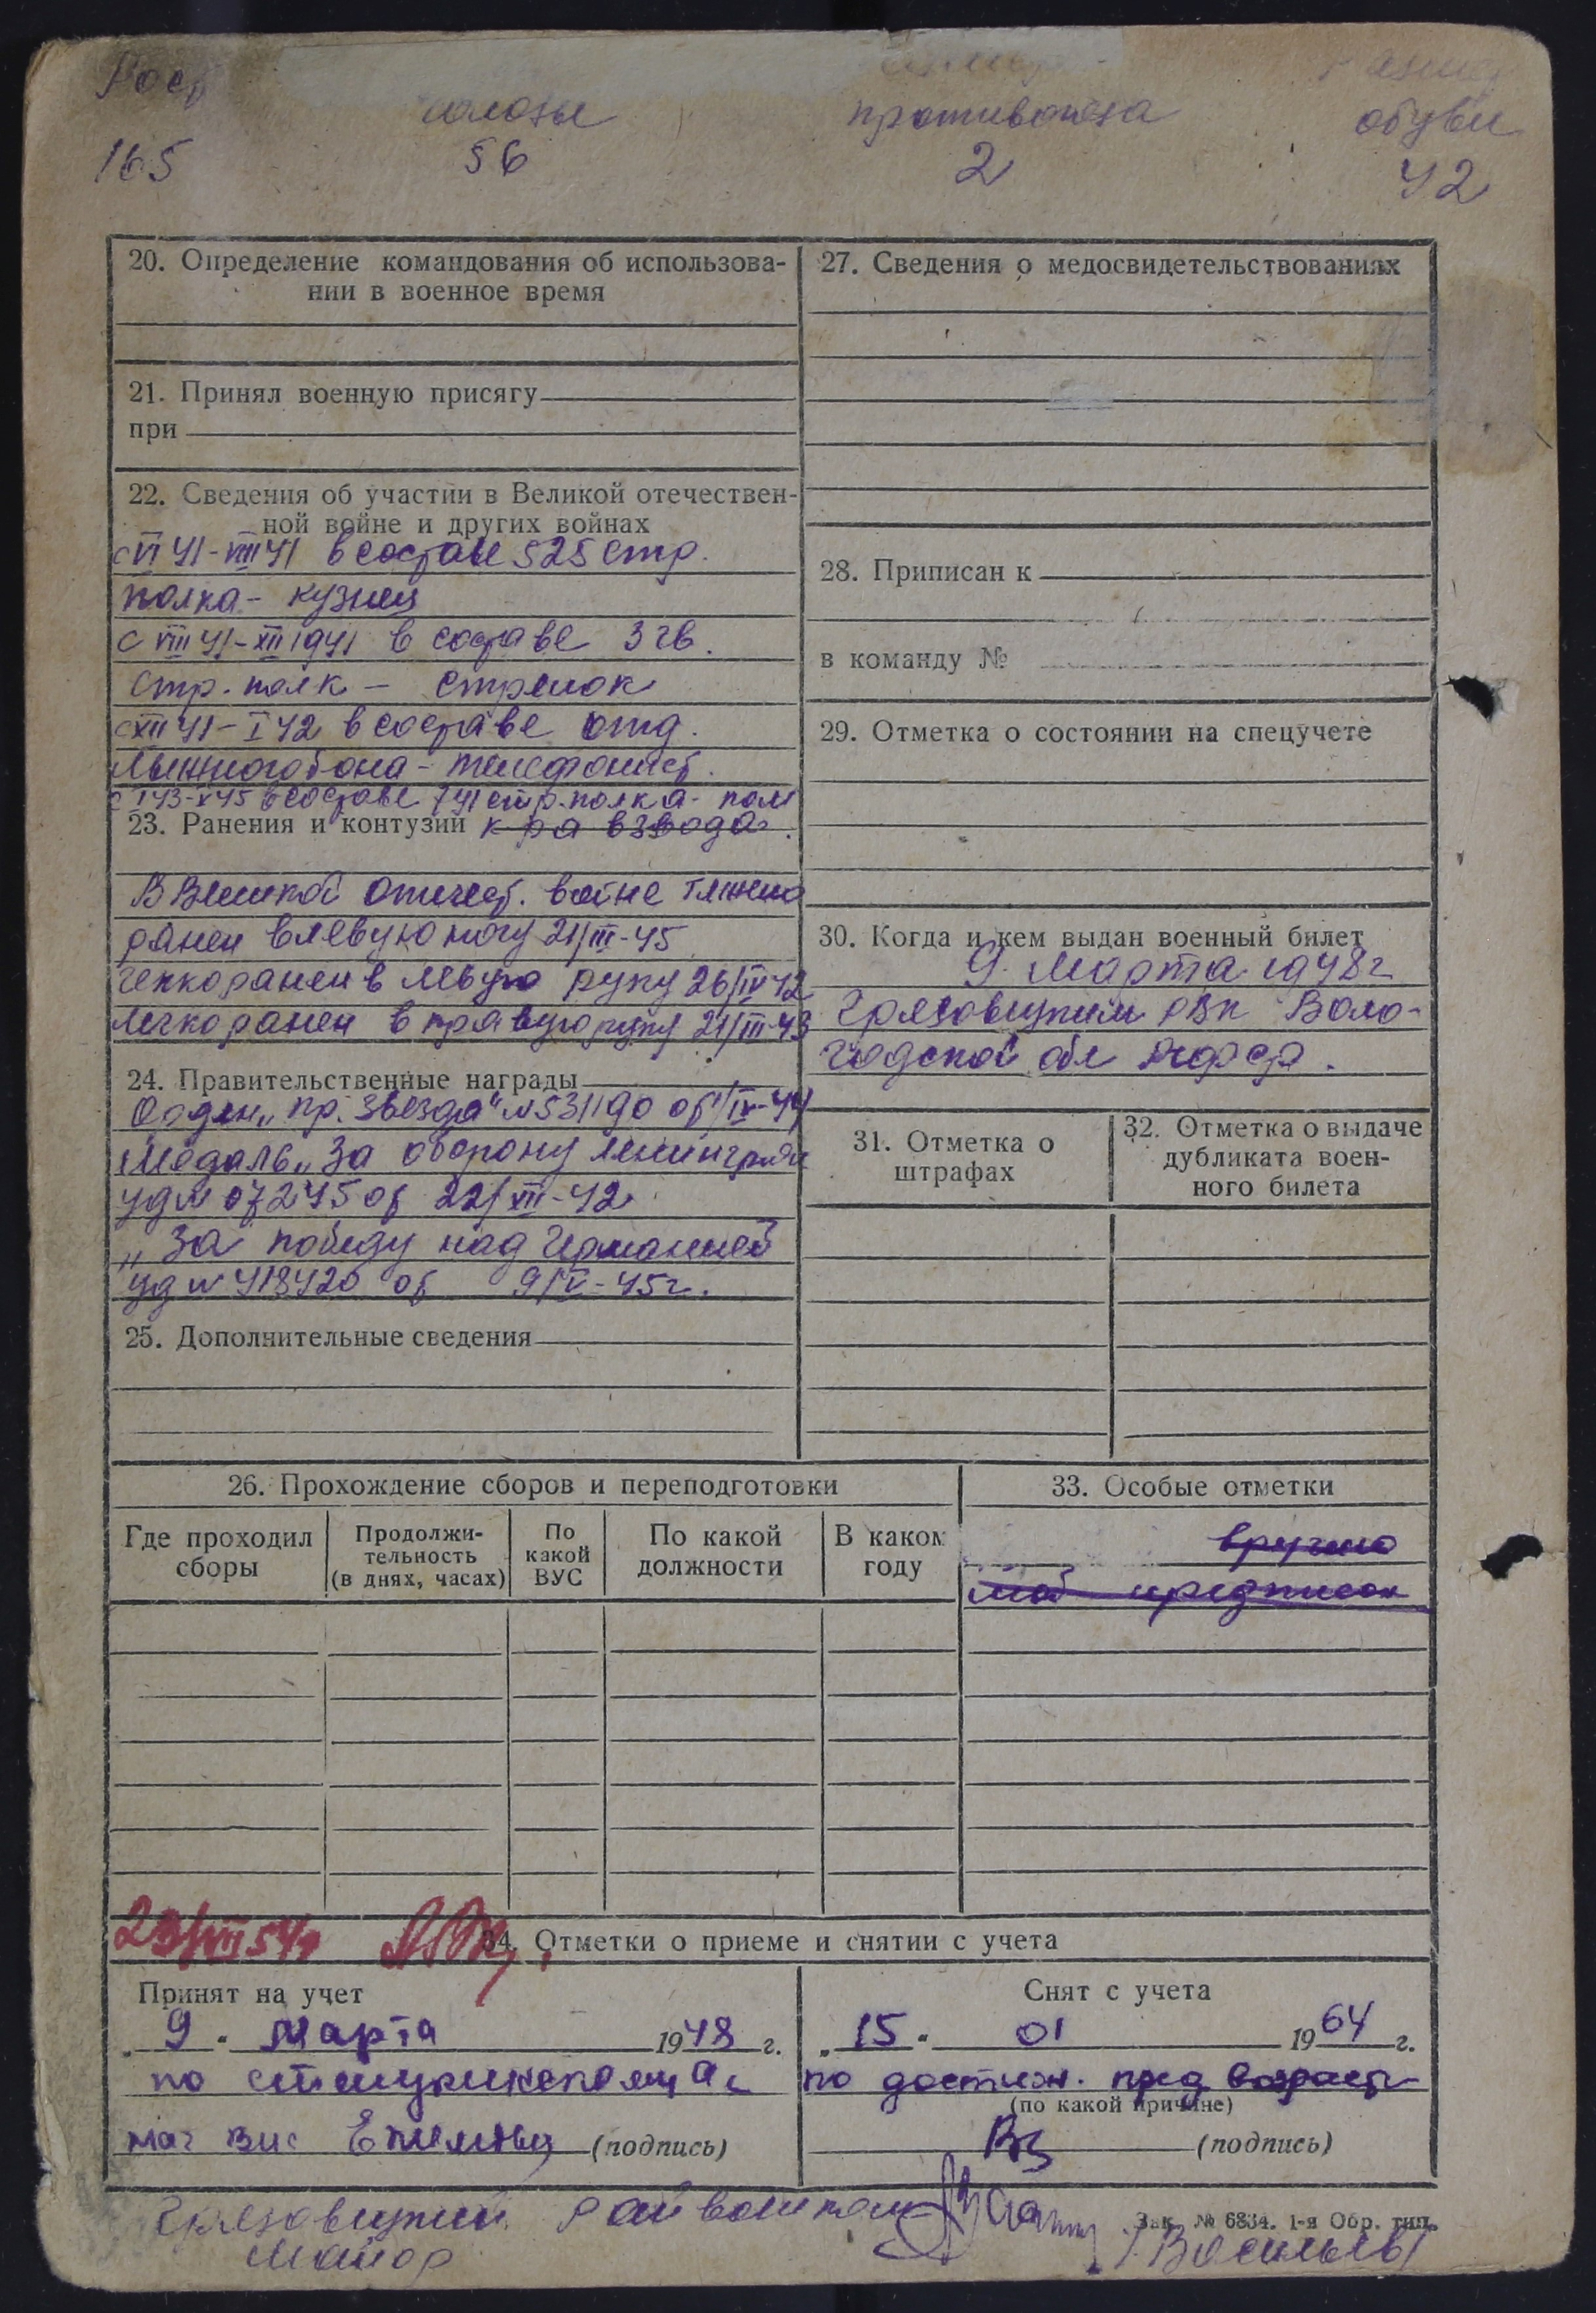 Рост
головы
противогаза
обуви
165
56
2
42
20. Определение командования об использова-
нии в военное время
21. Принял военную присягу
при
22. Сведения об участии в Великой отечествен-
ной войне и других войнах
с VI 41-VIII 41 в составе 525 стр.
полка - кузнец
с VIII 41-XII 1941 в составе 3 гв.
стр. полк - стрелок
с XII 41-I 42 в составе отд.
лыжного б-она - телефонист.
с I 43-V 45 в составе 741 стр. полка - пом
23. Ранения и контузии к-ра взвода.
В Великой Отечест. войне тяжело
ранен в левую ногу 21/III-45
легко ранен в левую руку 26/IV 42
легко ранен в правую руку 21/III-43
24. Правительственные награды
Орден „Кр. Звезда" № 531190 от /IV-44
Медаль „За оборону Ленинграда
уд № 07245 от 22/XII-42
„За победу над Германией
уд № 418420 от 9/V-45г.
25. Дополнительные сведения
27. Сведения о медосвидетельствованиях
28. Приписан к
в команду №
29. Отметка о состоянии на спецучете
30. Когда и кем выдан военный билет
9 Марта 1948г
Грязовецким РВК Воло-
годской обл
31. Отметка о
штрафах
32. Отметка о выдаче
дубликата воен-
ного билета
26. Прохождение сборов и переподготовки
Где проходил
сборы
Продолжи-
тельность
(в днях, часах)
По
какой
ВУС
По какой
должности
В каком
году
33. Особые отметки
вручено
моб предписан
23/VII 54г
34. Отметки о приеме и снятии с учета
Принят на учет
„ 9 " Марта 1948 г.
по
(подпись)
Снят с учета
„ 15 " 01 1964 г.
по достиж. пред возраста
(по какой причине)
(подпись)
Грязовецкий Райвоенком
Майор
Васильев
Зак. № 6834. 1-я Обр. тип.